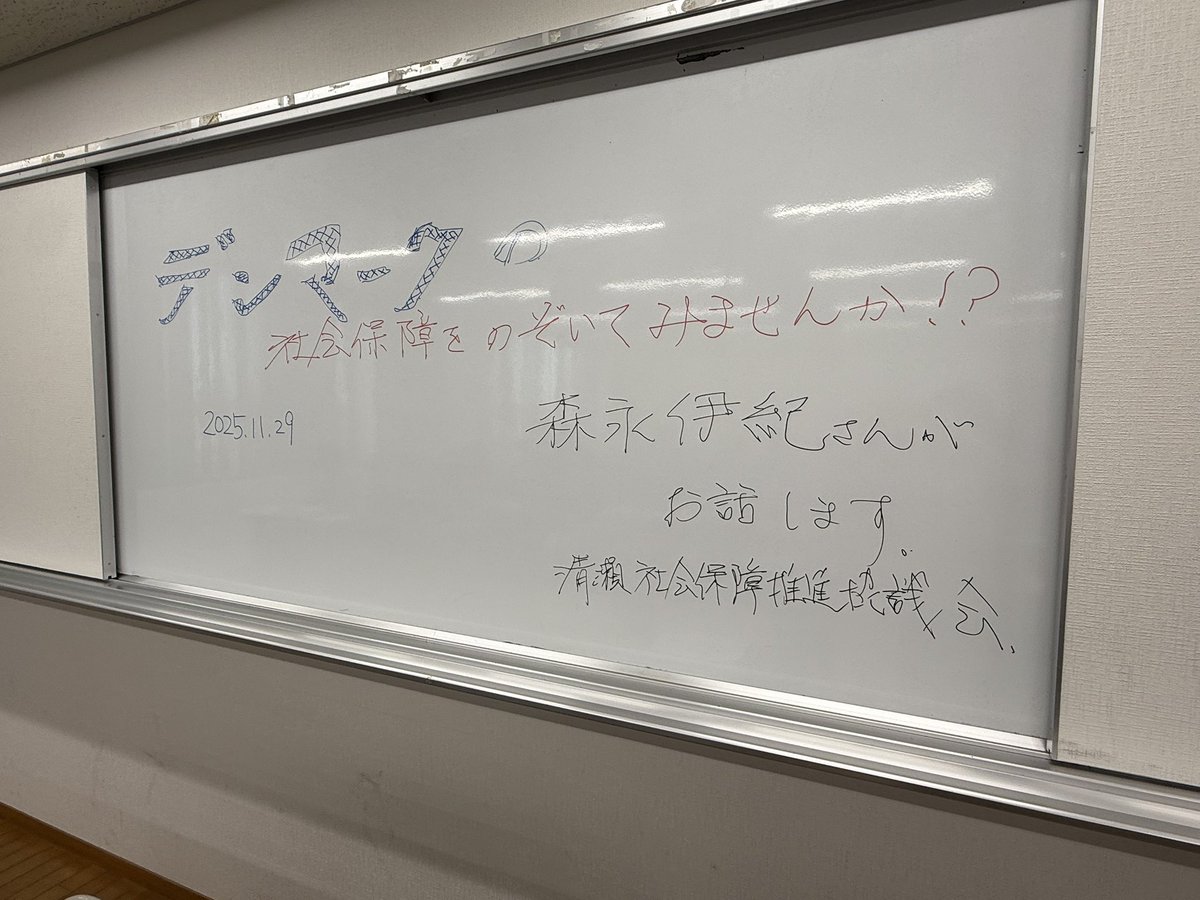 デンマークの
社会保障をのぞいてみませんか!?
2025.11.29
森永伊紀さんが
お話します。
清瀬社会保障推進協議会.